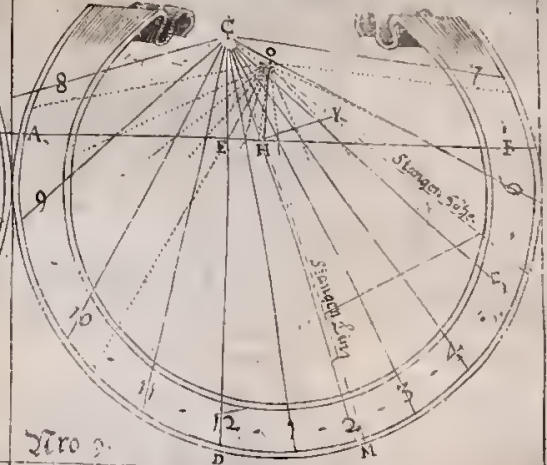 C
o
8
7
A
E
H
γ
F
9
6
Stangen Höhe
5
Stangen Lini
10
4
11
3
12
1
2
M
D
Nro 9.